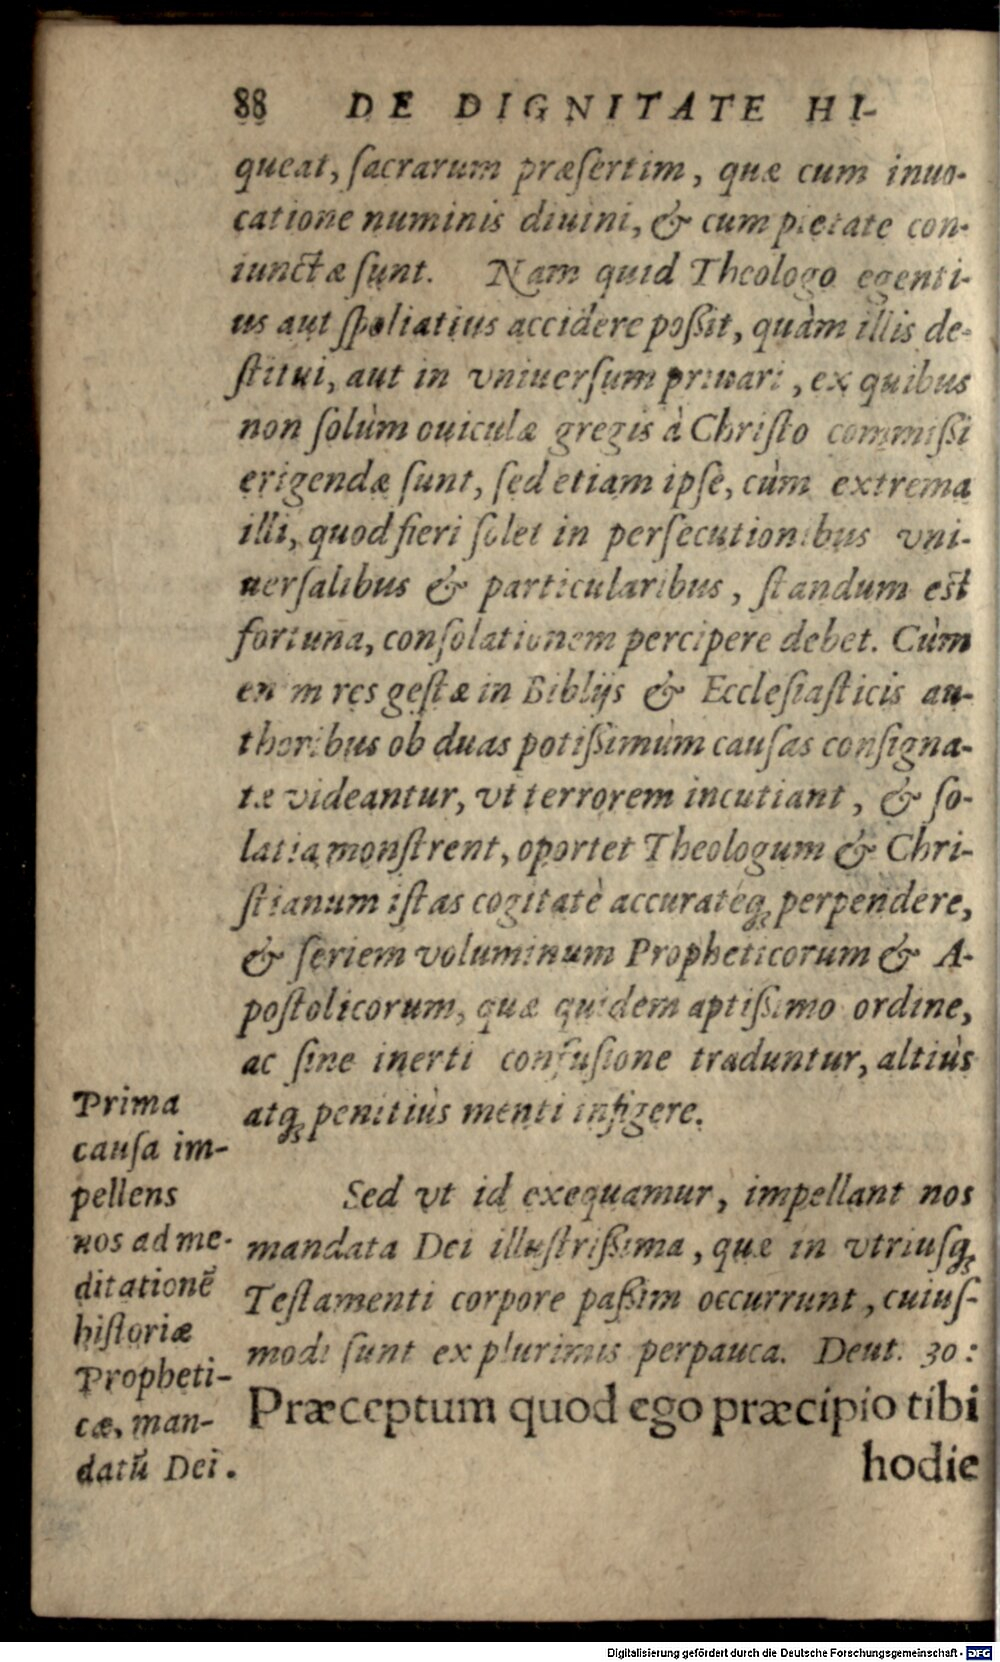 88 DE DIGNITATE HI-
queat, ſacrarum præſertim, quæ cum inuo-
catione numinis diuini, & cum pietate con-
iunctæ ſunt. Nam quid Theologo egenti-
us aut ſpoliatius accidere poßit, quàm illis de-
ſtitui, aut in vniuerſum priuari, ex quibus
non ſolùm ouiculæ gregis à Chriſto commißi
erigendæ ſunt, ſed etiam ipſe, cùm extrema
illi, quod fieri ſolet in perſecutionibus vni-
uerſalibus & particularibus, ſtandum eſt
fortuna, conſolationem percipere debet. Cùm
enim res geſtæ in Biblijs & Eccleſiaſticis au-
thoribus ob duas potißimùm cauſas conſigna-
tæ videantur, vt terrorem incutiant, & ſo-
latia monſtrent, oportet Theologum & Chri-
ſtianum iſtas cogitatè accuratéq; perpendere,
& ſeriem voluminum Propheticorum & A-
poſtolicorum, quæ quidem aptißimo ordine,
ac ſine inerti confuſione traduntur, altiùs
atq; penitiùs menti infigere.
Prima
cauſa im-
pellens
nos ad me-
ditationē
hiſtoriæ
Propheti-
cæ, man-
datū Dei.
Sed vt id exequamur, impellant nos
mandata Dei illuſtrißima, quæ in vtriuſq;
Teſtamenti corpore paßim occurrunt, cuiuſ-
modi ſunt ex plurimis perpauca. Deut. 30:
Præceptum quod ego præcipio tibi
hodie
Digitalisierung gefördert durch die Deutsche Forschungsgemeinschaft - DFG